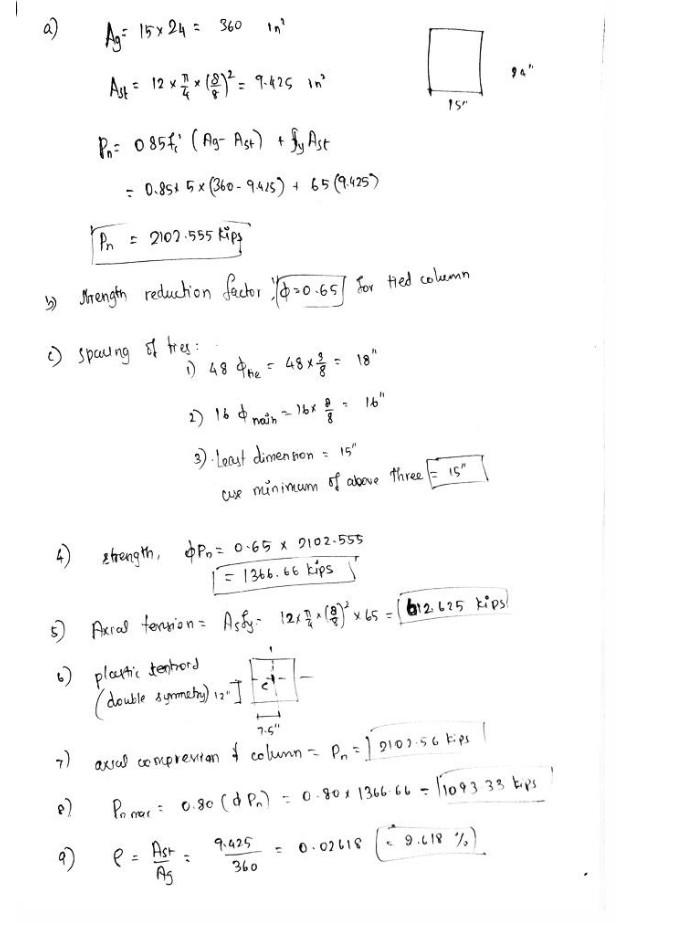 a) Ag = 15 x 24 = 360 in²
24"
15"
Ast = 12 x π/4 x (8/8)² = 9.425 in²
Pn = 0.85 fc' (Ag - Ast) + fy Ast
= 0.85 x 5 x (360 - 9.425) + 65 (9.425)
Pn = 2102.555 kips
b) strength reduction factor, ϕ = 0.65 for tied column
c) spacing of ties:
1) 48 ϕtie = 48 x 3/8 = 18"
2) 16 ϕmain = 16 x 8/8 = 16"
3) Least dimension = 15"
use minimum of above three = 15"
4) strength, ϕPn = 0.65 x 2102.555
= 1366.66 kips
5) Axial tension = Asfy = 12 x π/4 x (8/8)² x 65 = 612.625 kips
6) plastic centroid
(double symmetry) 12"
c
7.5"
7) axial compression of column = Pn = 2102.56 kips
8) Pn max = 0.80 (ϕ Pn) = 0.80 x 1366.66 = 1093.33 kips
9) ρ = Ast/Ag = 9.425/360 = 0.02618 (= 2.618 %)